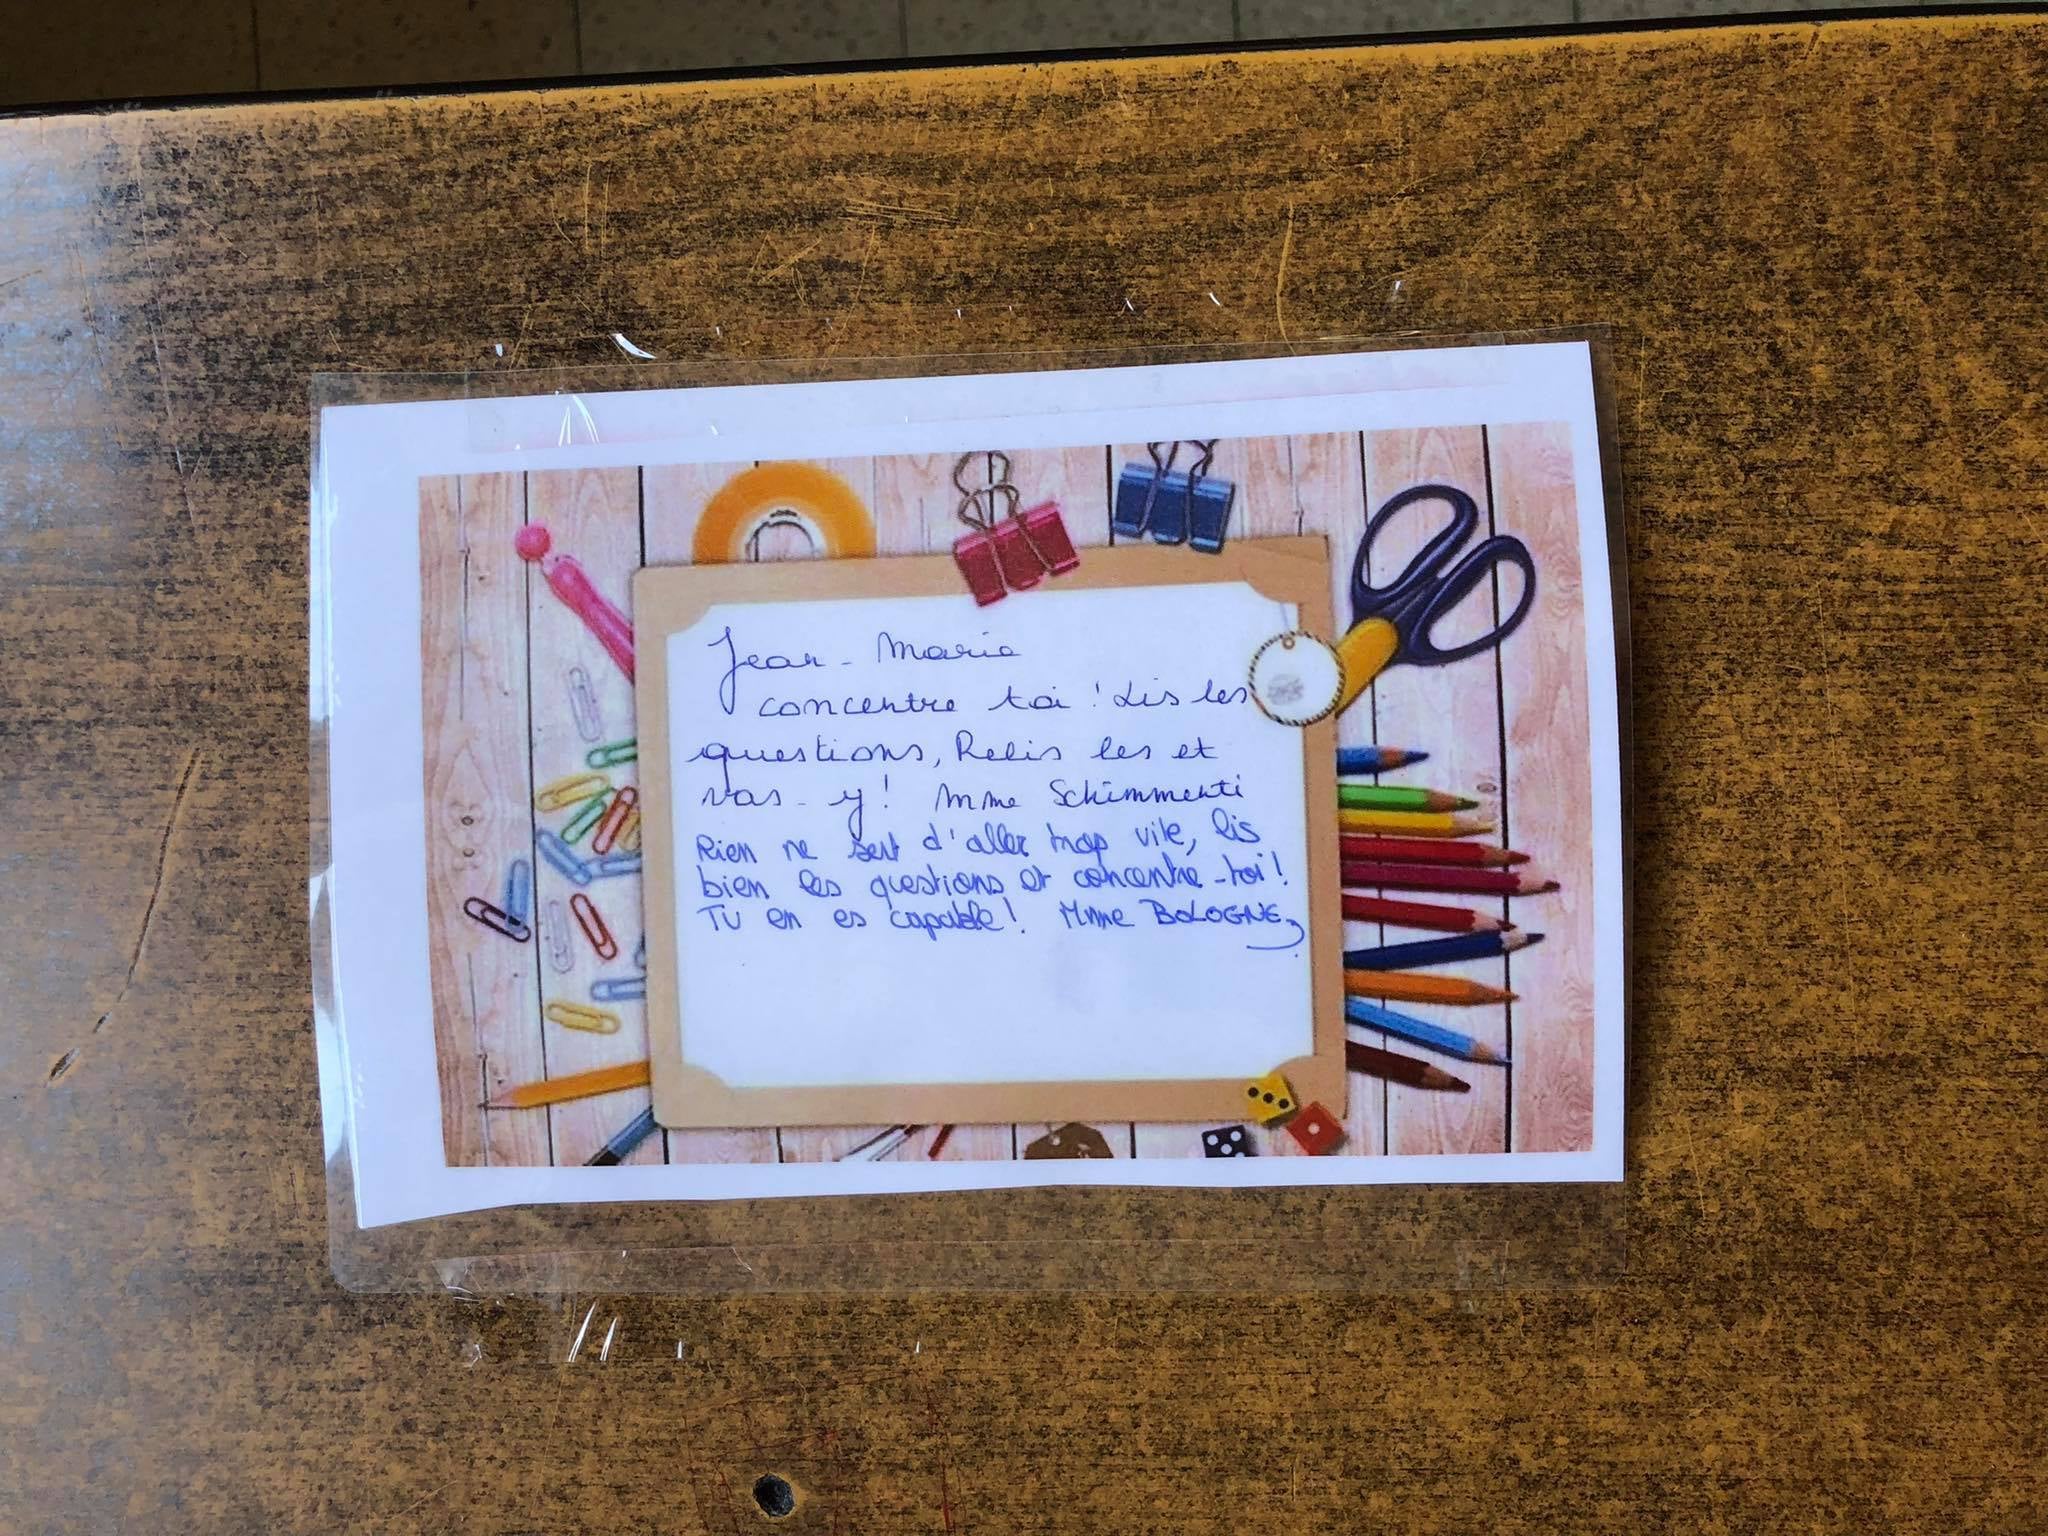 Jean-Marie
concentre toi ! Lis les
questions, Relis les et
vas-y ! Mme Schimmenti
Rien ne sert d'aller trop vite, lis
bien les questions et concentre-toi !
Tu en es capable ! Mme BOLOGNE